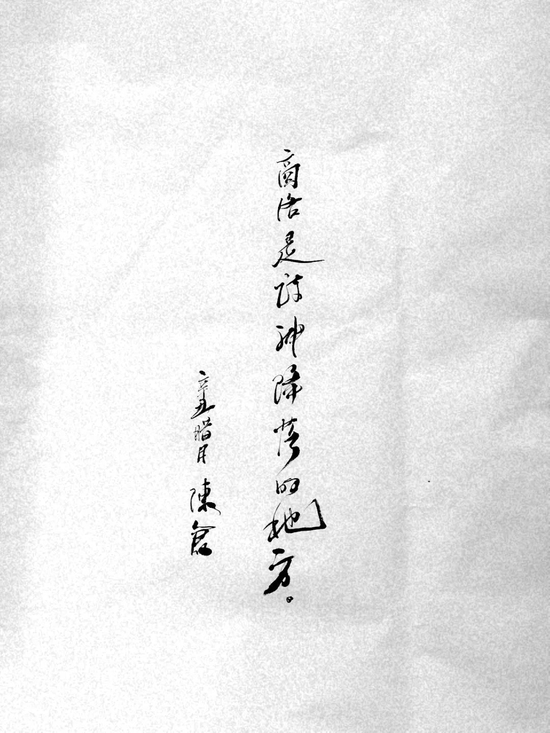 商洛是诗神降落的地方。
辛丑腊月 陳倉